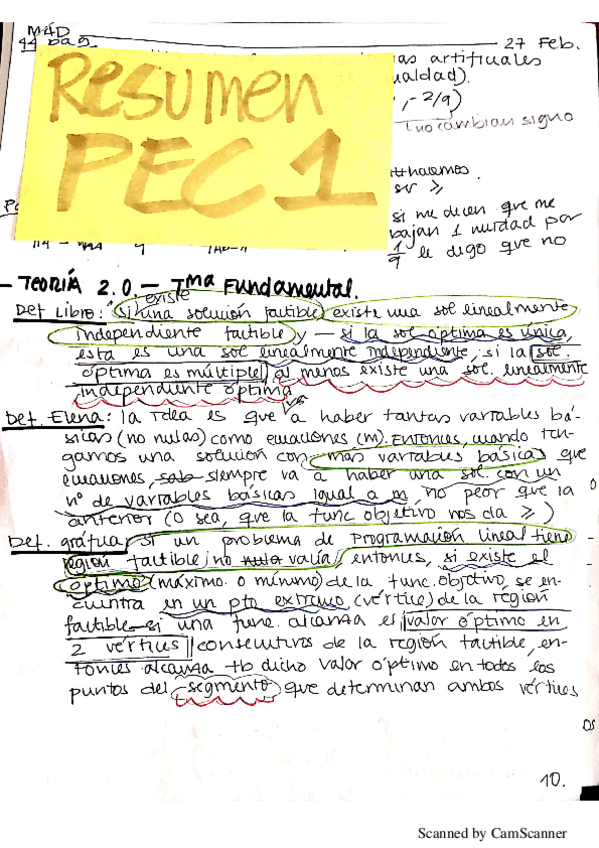 M4D
44 pag
27 Feb.
Resumen
PEC 1
as artificiales
ualdad).
, -2/9)
(no cambian signo
hacemos.
ser ≥
si me dicen que me
bajan 1 unidad por
1/9 le digo que no
- TEORÍA 2.0. - Tma Fundamental.
Def Libro: Si existe una solución factible, existe una sol linealmente
independiente factible y — si la sol óptima es única,
esta es una sol linealmente independiente, si la sol
óptima es múltiple al menos existe una sol. linealmente
independiente óptima
Def. Elena: la idea es que va a haber tantas variables bá-
sicas (no nulas) como ecuaciones (m). Entonces, cuando ten-
gamos una solución con más variables básicas que
ecuaciones, sab siempre va a haber una sol. con un
nº de variables básicas igual a m, no peor que la
anterior (o sea, que la func objetivo nos da ≥)
Def. gráfica: si un problema de Programación lineal tiene
región factible no nula vacía, entonces, si existe el
óptimo (máximo o mínimo) de la func. objetivo, se en-
cuentra en un pto extremo (vértice) de la región
factible - si una func. alcanza el valor óptimo en
2 vértices consecutivos de la región factible, en-
tonces alcanza tb dicho valor óptimo en todos los
puntos del segmento que determinan ambos vértices
10.
Scanned by CamScanner